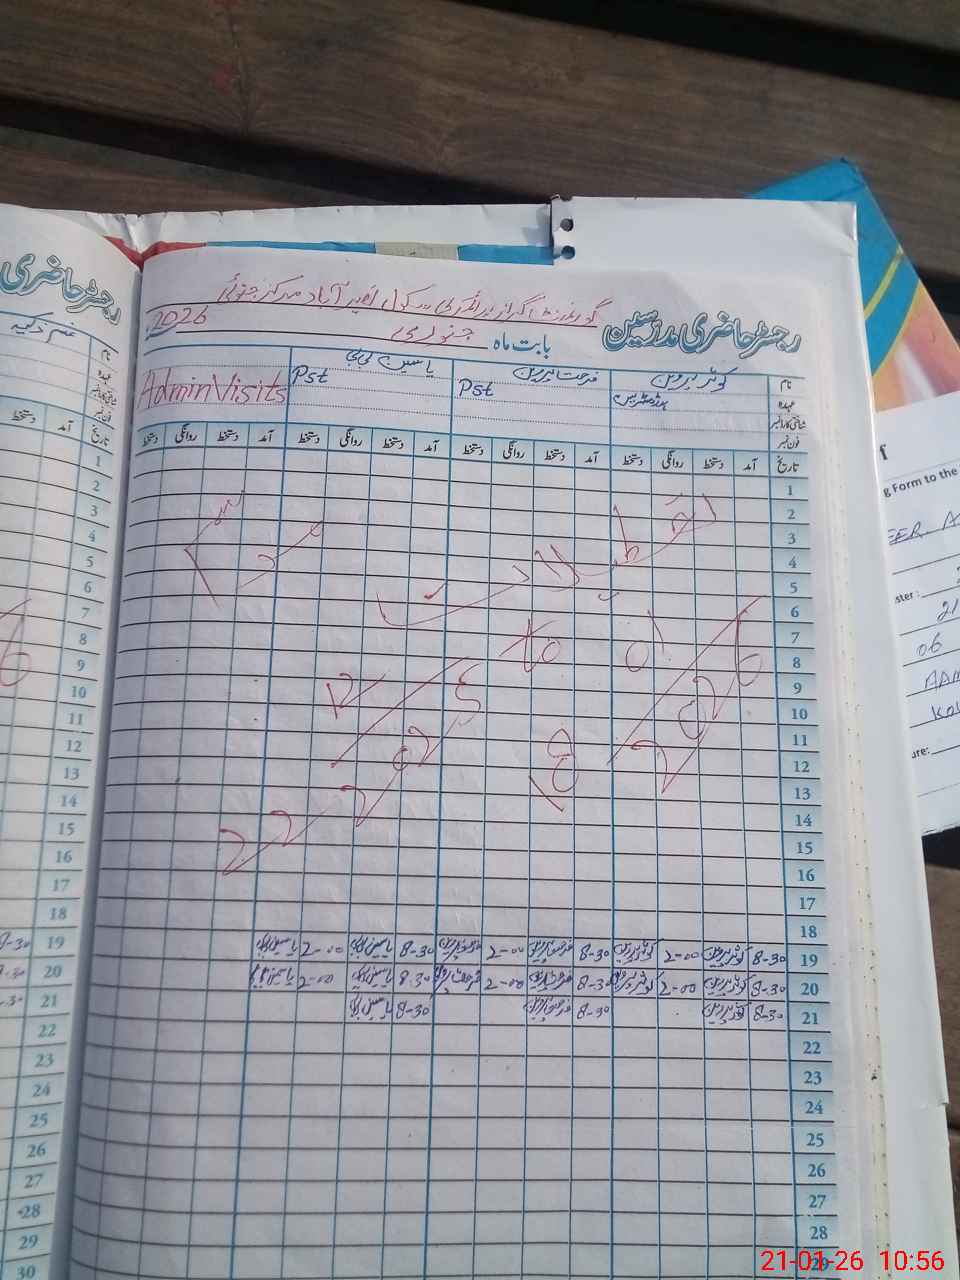 رجسٹر حاضری
رجسٹر حاضری مدرسین
گورنمنٹ گرلز پرائمری سکول نصیر آباد مرکز جتوئی
بابت ماہ جنوری 2026
نام کوثر پروین فرحت پروین یاسمین بی بی
عہدہ ہیڈمسٹریس Pst Pst Admin Visits
شناختی کارڈ نمبر
فون نمبر
تاریخ آمد دستخط روانگی دستخط آمد دستخط روانگی دستخط آمد دستخط روانگی دستخط آمد دستخط روانگی دستخط
1
2
3
4
5
6
7
8
9
10
11
12
13
14
15
16
17
18
19 8-30 کوثر پروین 2-00 کوثر پروین 8-30 فرحت پروین 2-00 فرحت پروین 8-30 یاسمین بی بی 2-00 یاسمین بی بی
20 8-30 کوثر پروین 2-00 کوثر پروین 8-30 فرحت پروین 2-00 فرحت پروین 8-30 یاسمین بی بی 2-00 یاسمین بی بی
21 8-30 کوثر پروین 8-30 فرحت پروین 8-30 یاسمین بی بی
22
23
24
25
26
27
28
29
تعطیلات
22 2025 to 18 01 2026
نام
عہدہ
تاریخ
آمد
دستخط
1
2
3
4
5
6
7
8
9
10
11
12
13
14
15
16
17
18
19 8-30
20 8-30
21
22
23
24
25
26
27
28
29
30
g Form to the
ster :
21
06
ure:
21-01-26 10:56